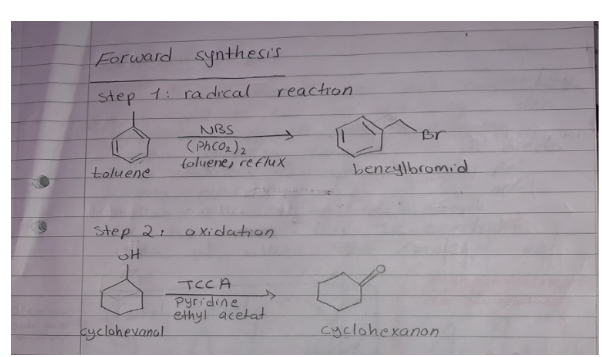 Forward synthesis
step 1: radical reaction
NBS
(PhCO2)2
toluene, reflux
Br
toluene
benzylbromid
step 2: oxidation
OH
O
TCCA
pyridine
ethyl acetat
cyclohexanol
cyclohexanon